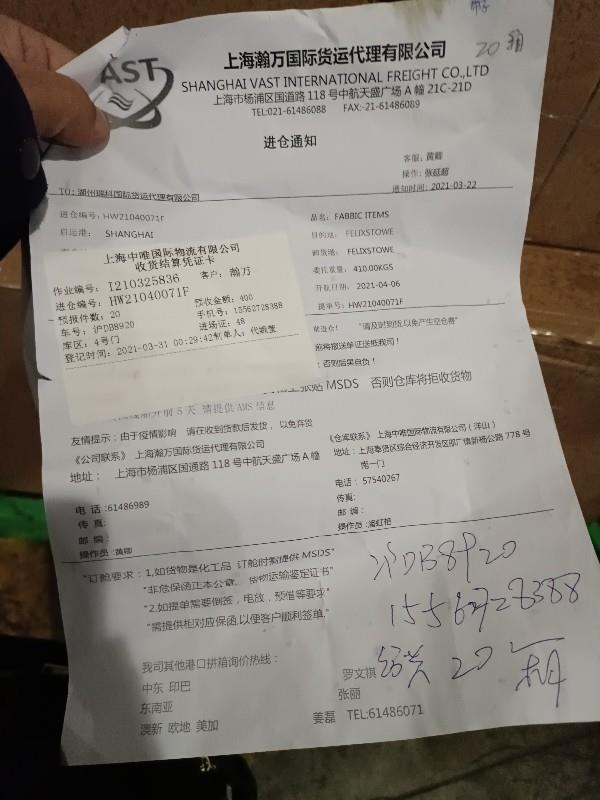 20 箱
AST
上海瀚万国际货运代理有限公司
SHANGHAI VAST INTERNATIONAL FREIGHT CO.,LTD
上海市杨浦区国道路 118 号中航天盛广场 A 幢 21C-21D
TEL:021-61486088 FAX:-21-61486089
进仓通知
客服：黄卿
操作：张廷超
通知时间：2021-03-22
TO：湖州瑞科国际货运代理有限公司
进仓编号：HW21040071F
启运港： SHANGHAI
品名：FABBIC ITEMS
目的地： FELIXSTOWE
卸货港： FELIXSTOWE
委托重量： 410.00KGS
开航日期： 2021-04-06
提单号：HW21040071F
上海中唯国际物流有限公司
收货结算凭证卡
作业编号：I210325836 客户：瀚万
进仓编号：HW21040071F
预报件数：20 预收金额：400
车号：沪DB8920 手机号：15562728388
库区：4号门 进场证：48
登记时间：2021-03-31 00:29:42制单人：代
"请及时到货,以免产生空仓费"
单送抵我司！
否则后果自负！
MSDS 否则仓库将拒收货物
前 5 天 请提供 AMS 信息
友情提示：由于疫情影响 请在收到货款后发货，以免弃货
《公司联系》上海瀚万国际货运代理有限公司
地址： 上海市杨浦区国通路 118 号中航天盛广场 A 幢
电 话 :61486989
传 真:
邮 编:
操作员:黄卿
《仓库联系》上海中唯国际物流有限公司（洋山）
地址：上海奉贤区综合经济开发区邵厂镇新杨公路 778 号
南一门
电话： 57540267
传真:
邮 编：
操作员:
"订舱要求：1,如货物是化工品 订舱时需提供 MSDS"
"非危保函正本公章， 货物运输鉴定证书"
"2.如提单需要倒签，电放，预借等要求"
"需提供相对应保函,以便客户顺利签单."
沪DB8920
15562728388
20
我司其他港口拼箱询价热线：
中东 印巴
东南亚
澳新 欧地 美加
罗文祺
张丽
姜磊 TEL:61486071